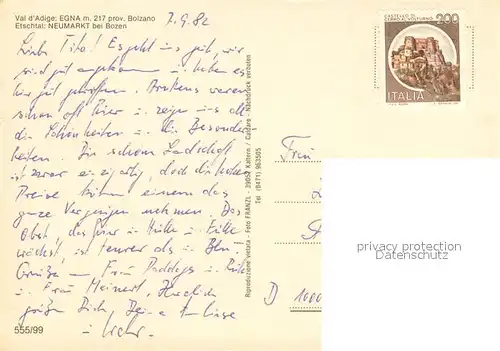 Val d'Adige: EGNA m. 217 prov. Bolzano
Etschtal: NEUMARKT bei Bozen
7.9.82
CASTELLO DI CERRO AL VOLTURNO
200
ITALIA
Es geht uns gut, wir
sind gut angekommen u. haben es
hier gut getroffen. waren
schon oft hier u. zeigen uns all
die Schönheiten u. die Besonder-
heiten. Die schöne Landschaft
ist zwar einzigartig, doch die hohen
Preise können einem das
ganze Vergnügen nehmen. Das
Obst, das hier in Hülle u. Fülle
wächst, ist teurer als in
Grüße an Frau u.
u. Frau Meinert. Herzlich
grüßen Dich, Deine
u.
Frau
D 1000
Riproduzione vietata - Foto FRANZL - 39052 Kaltern / Caldaro - Nachdruck verboten
Tel (0471) 963505
555/99
privacy protection
Datenschutz